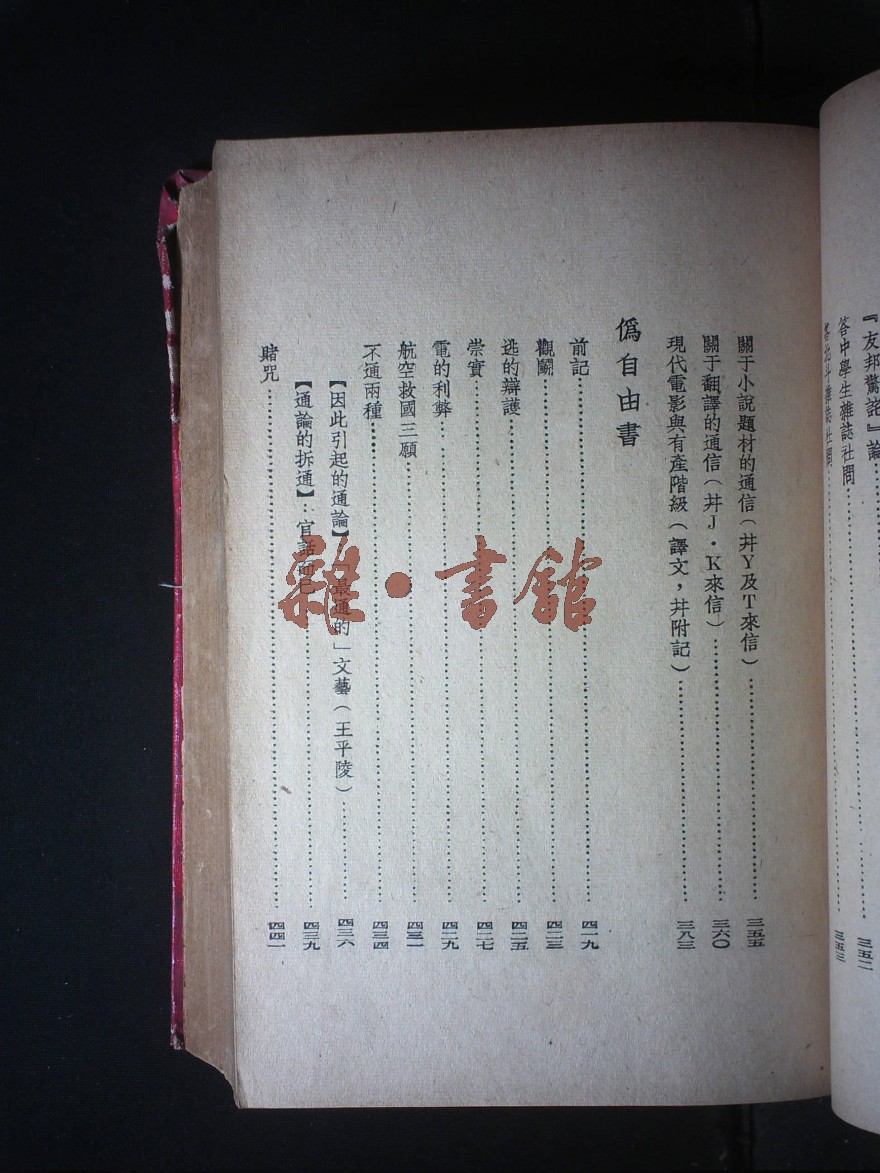 『友邦驚詫』論………三五二
答中學生雜誌社問………三五三
北斗雜誌社問
關于小說題材的通信(幷Y及T來信)………三五五
關于翻譯的通信(幷J・K來信)………三六〇
現代電影與有產階級(譯文,幷附記)………三八三
僞自由書
前記………四一九
觀鬬………四二三
逃的辯護………四二五
崇實………四二七
電的利弊………四二九
航空救國三願………四三一
不通兩種………四三四
【因此引起的通論】「最通的」文藝(王平陵)………四三六
【通論的拆通】:官話而已………四三九
賭咒………四四一
雜・書館